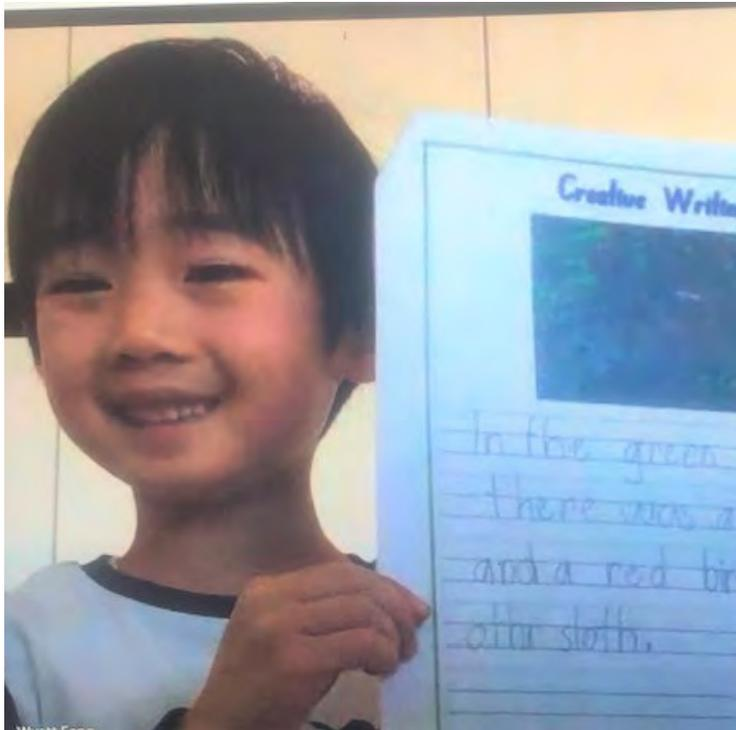 Creative
In the green
there was a
and a red
othr sloth.